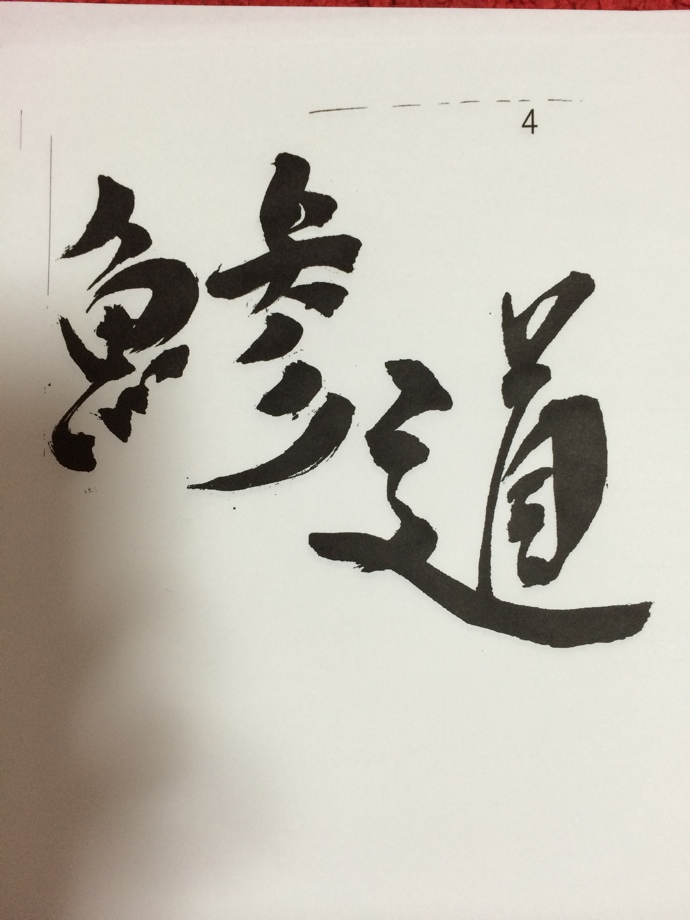 4
鯵道